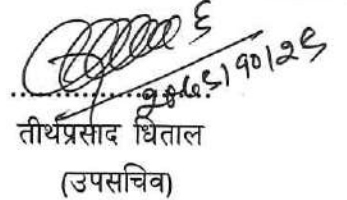 २०७९।१०।२९
तीर्थप्रसाद धिताल
(उपसचिव)